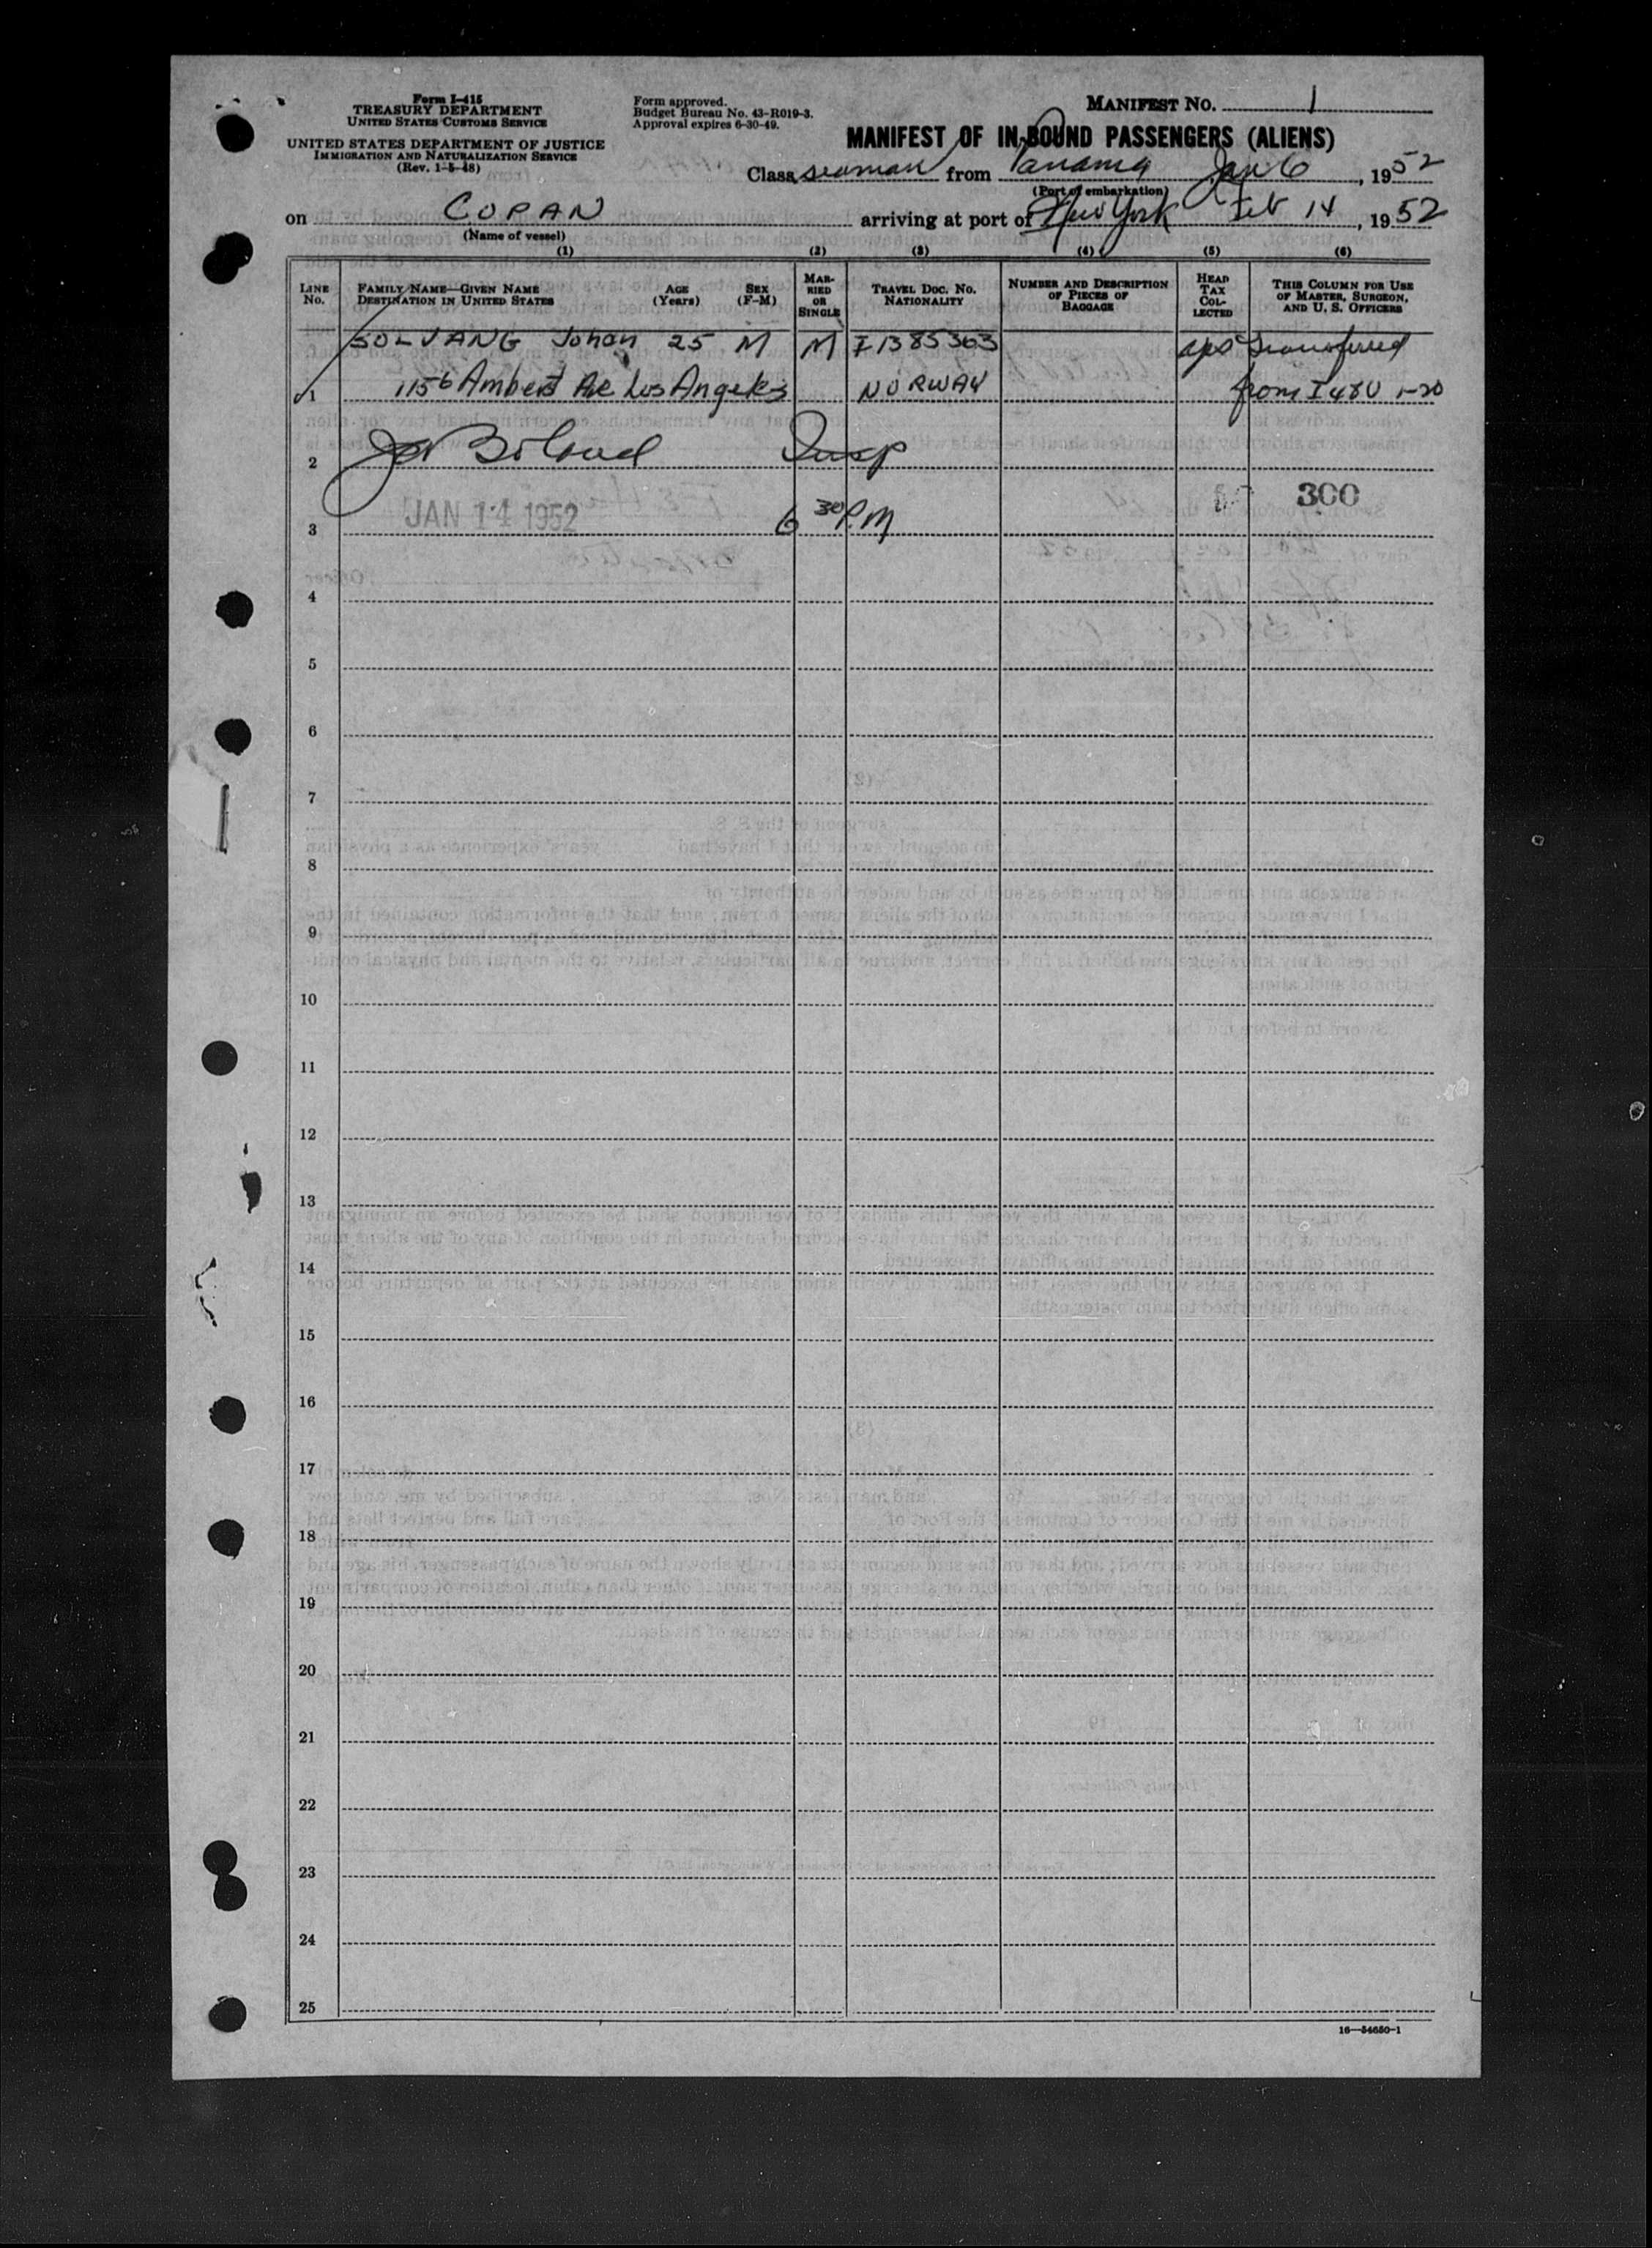 Form I-415
TREASURY DEPARTMENT
UNITED STATES CUSTOMS SERVICE
UNITED STATES DEPARTMENT OF JUSTICE
IMMIGRATION AND NATURALIZATION SERVICE
(Rev. 1-5-48)
Form approved.
Budget Bureau No. 43-R019-3.
Approval expires 6-30-49.
MANIFEST No. 1
MANIFEST OF IN-BOUND PASSENGERS (ALIENS)
Class seaman from Panama Jan 6, 1952
(Port of embarkation)
on COPAN arriving at port of New York Feb 14, 1952
(Name of vessel)
(1) (2) (3) (4) (5) (6)
LINE No. FAMILY NAME—GIVEN NAME DESTINATION IN UNITED STATES AGE (Years) SEX (F-M) MARRIED OR SINGLE TRAVEL DOC. NO. NATIONALITY NUMBER AND DESCRIPTION OF PIECES OF BAGGAGE HEAD TAX COLLECTED THIS COLUMN FOR USE OF MASTER, SURGEON, AND U. S. OFFICERS
SOLVANG Johan 25 M M I1385363 Transferred
1 1156 Ave Los Angeles NORWAY from I480 1-20
2 Boland Insp
300
3 JAN 14 1952 6 30 P.M
4
5
6
7
8
9
10
11
12
13
14
15
16
17
18
19
20
21
22
23
24
25
16—54650-1